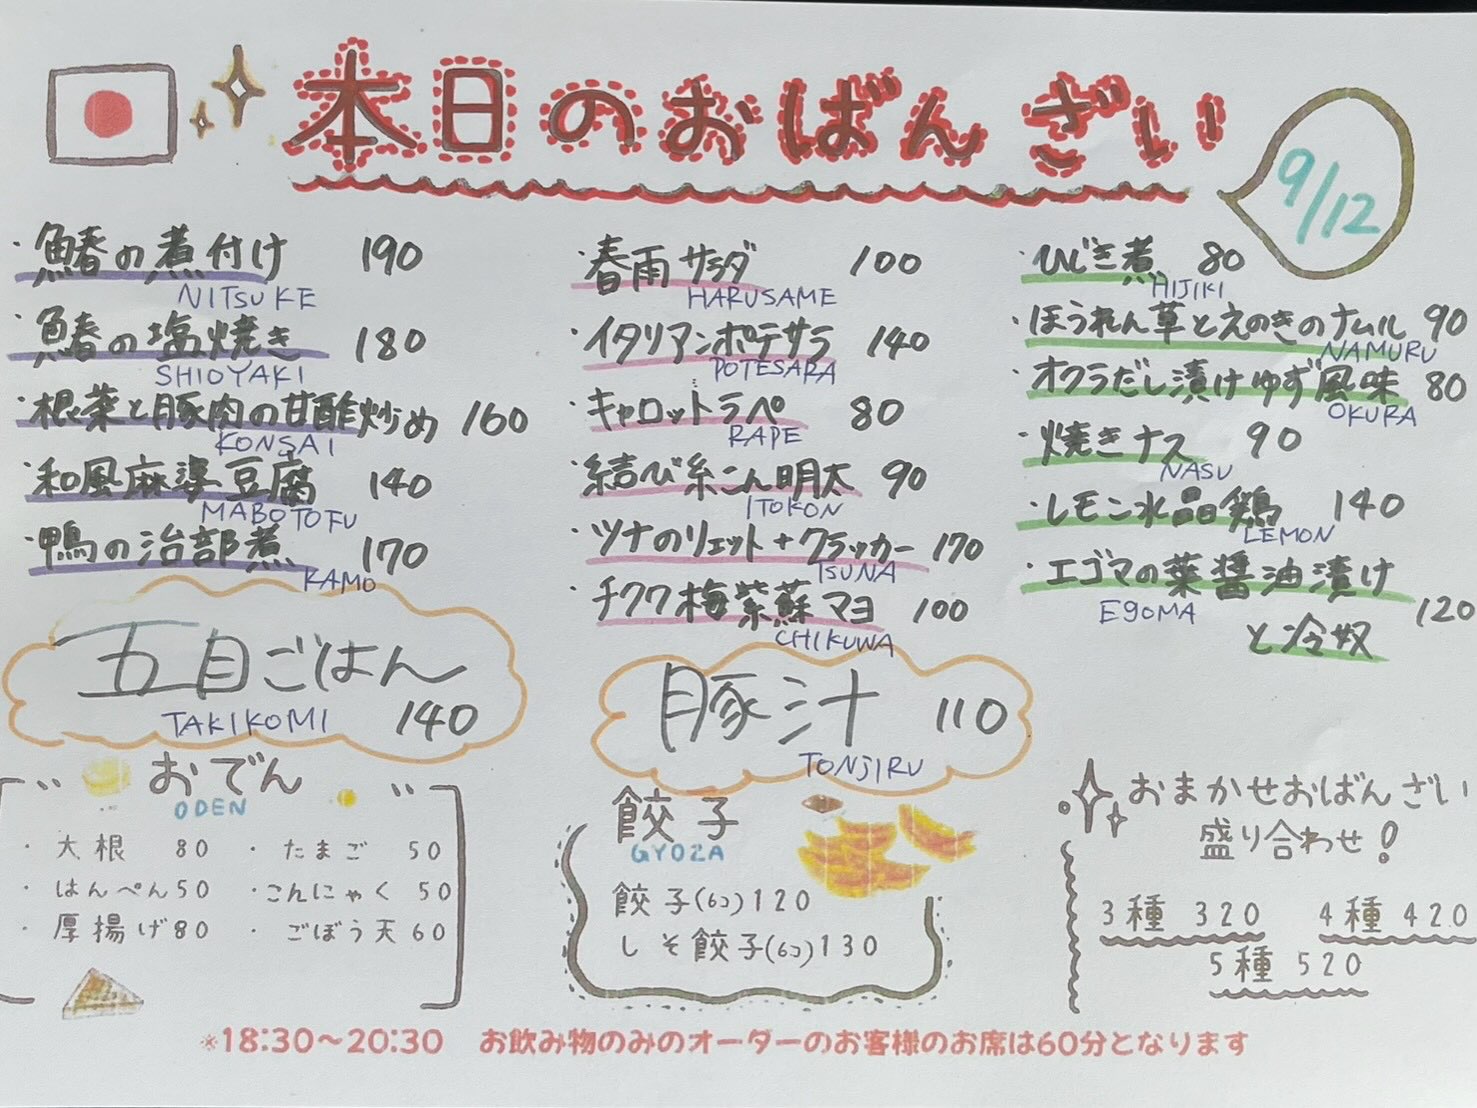 本日のおばんざい
9/12
・鰆の煮付け 190
NITSUKE
・鰆の塩焼き 180
SHIOYAKI
・根菜と豚肉の甘酢炒め 160
KONSAI
・和風麻婆豆腐 140
MABOTOFU
・鴨の治部煮 170
KAMO
・春雨サラダ 100
HARUSAME
・イタリアンポテサラ 140
POTESARA
・キャロットラペ 80
RAPE
・結び糸こん明太 90
ITOKON
・ツナのリエット+クラッカー 170
TSUNA
・チクワ梅紫蘇マヨ 100
CHIKUWA
・ひじき煮 80
HIJIKI
・ほうれん草とえのきのナムル 90
NAMURU
・オクラだし漬けゆず風味 80
OKURA
・焼きナス 90
NASU
・レモン水晶鶏 140
LEMON
・エゴマの葉醤油漬け
EgOMA
と冷奴 120
五目ごはん
TAKIKOMI 140
豚汁 110
TONJIRU
おでん
ODEN
・大根 80 ・たまご 50
・はんぺん50 ・こんにゃく 50
・厚揚げ80 ・ごぼう天60
餃子
GYOZA
餃子(6コ)120
しそ餃子(6コ)130
おまかせおばんざい
盛り合わせ!
3種 320 4種 420
5種 520
※18:30~20:30 お飲み物のみのオーダーのお客様のお席は60分となります